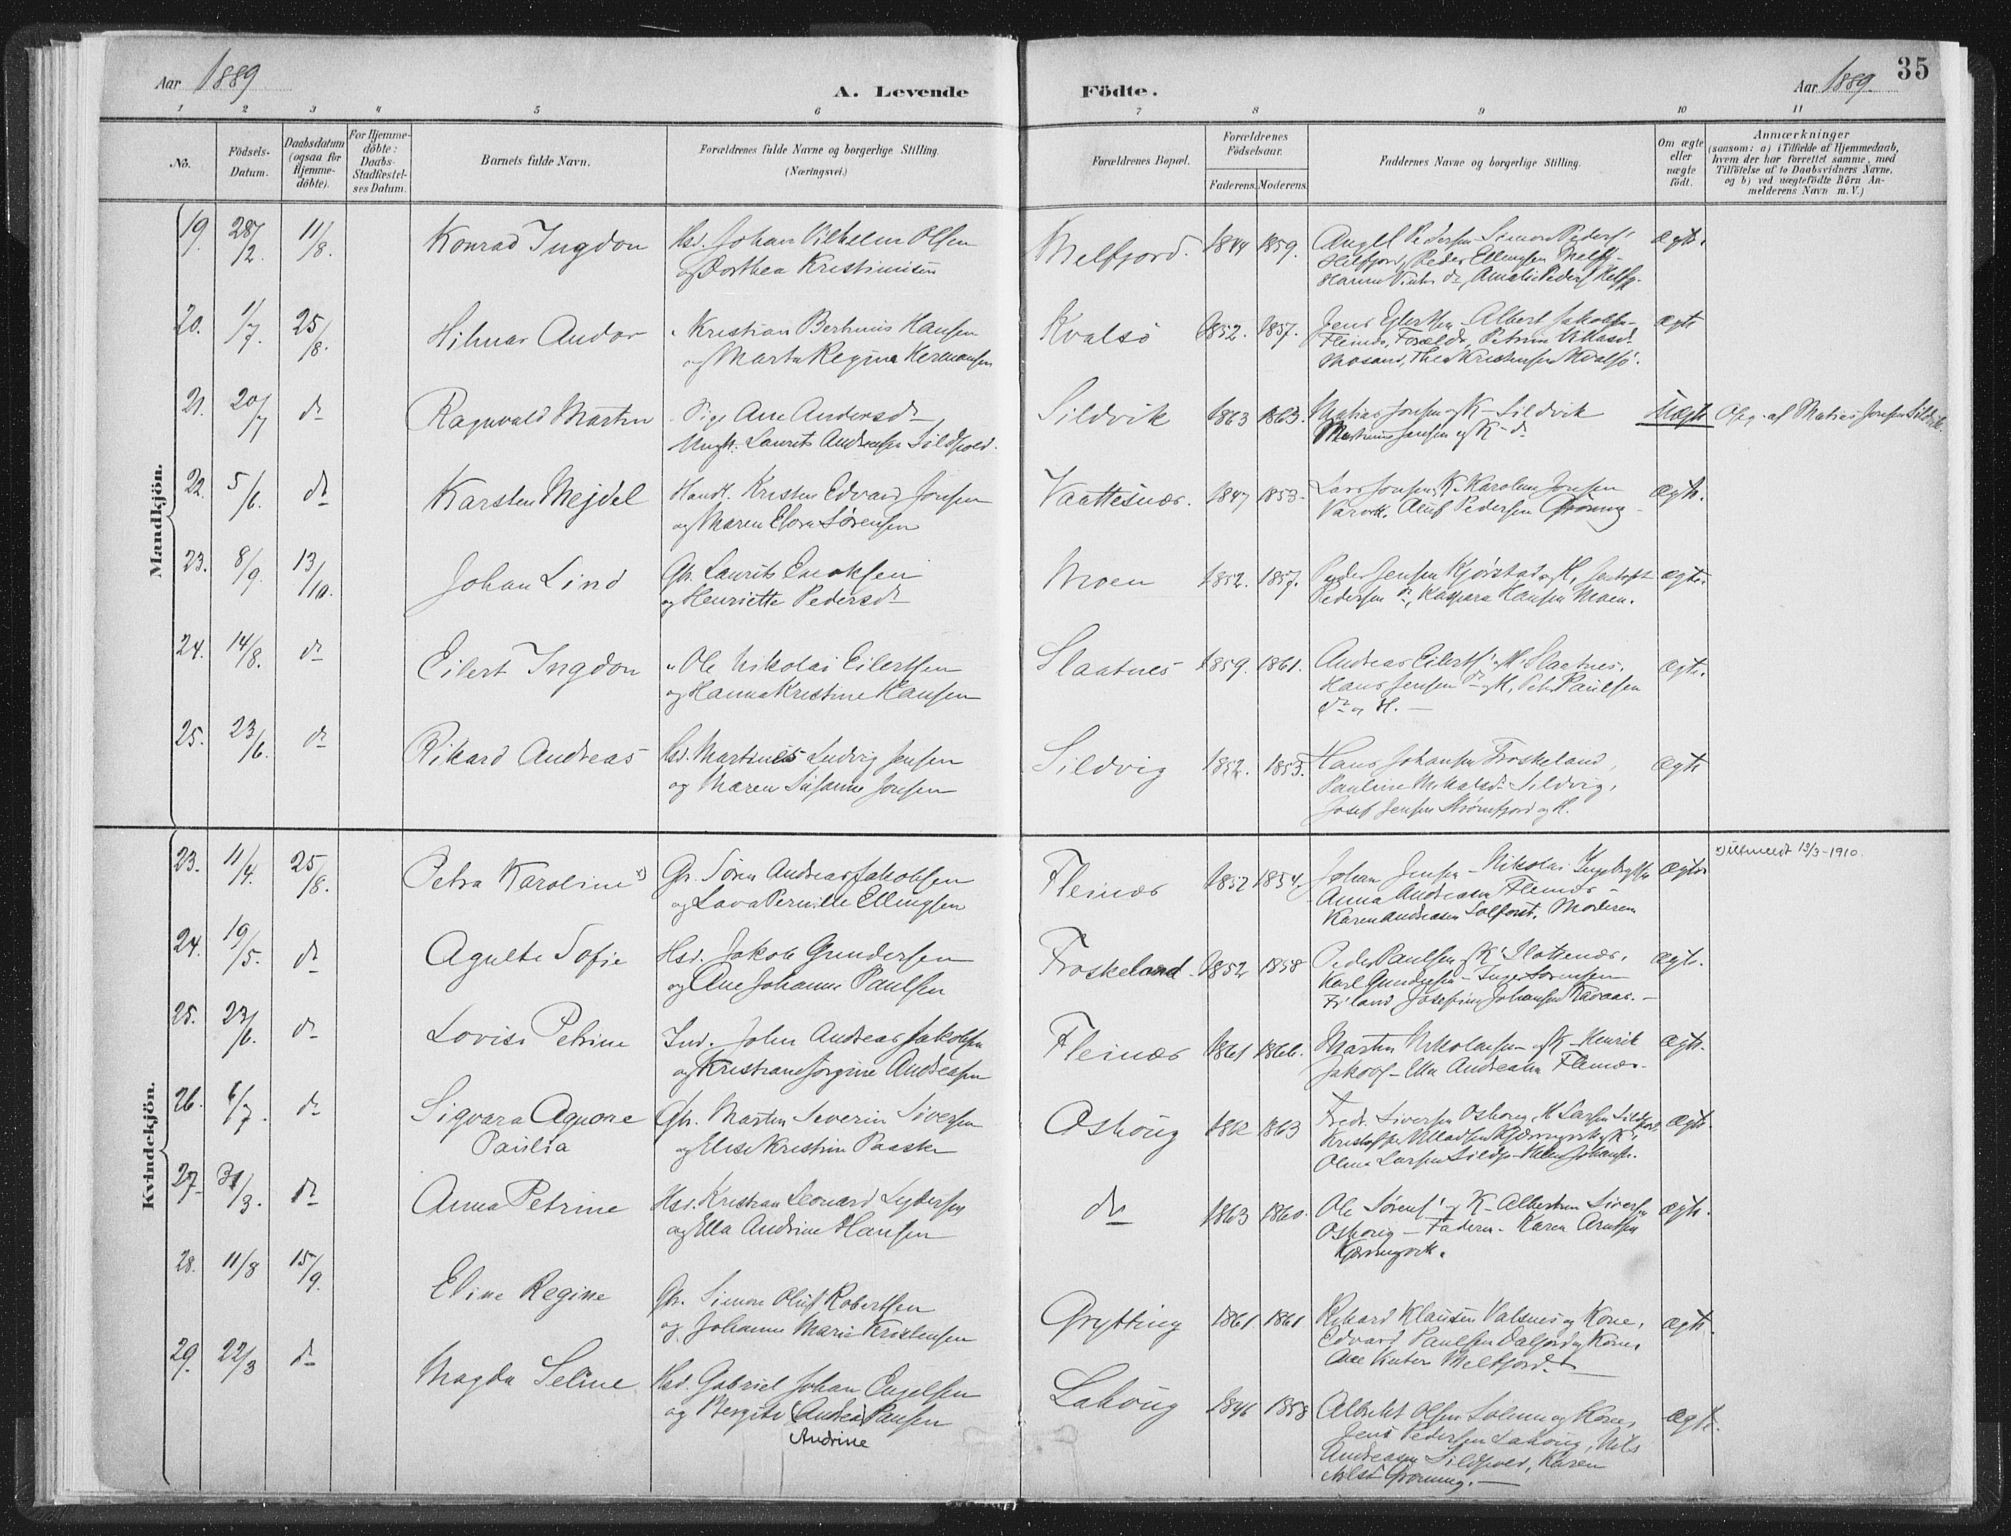 Aar 1889
A. Levende
Födte.
Aar 1889.
35
1 2 3 4 5 6 7 8 9 10 11
No.
Födsels-
Datum.
Daabsdatum
(ogsaa for
Hjemme-
döbte).
For Hjemme-
döbte:
Daabs-
Stadfæstel-
ses Datum.
Barnets fulde Navn.
Forældrenes fulde Navne og borgerlige Stilling.
(Næringsvei.)
Forældrenes Bopæl.
Forældrenes
Födselsaar.
Faderens. Moderens.
Faddernes Navne og borgerlige Stilling.
Om ægte
eller
uægte
født.
Anmærkninger
(saasom: a) i Tilfælde af Hjemmedaab,
hvem der har forrettet samme, med
Tilföielse af to Daabsvidners Navne,
og b) ved uægtefödte Börn An-
melderens Navn m. V.)
Mandkjön.
19. 28/2. 11/8. Konrad Ingdon Hsd. Johan Vilhelm Olsen
og Dorthea Kristiansen
Melfjord. 1844 1859. Angel Pedersen Simon Peders.
Melfjord, Peder Ellingsen Melfj.
Hanna Vinter do, Amalie Peders Melfj.
ægte.
20. 1/7. 25/8. Hilmar Andor Kristian Berthinis Hansen
og Marta Regina Hermansen
Kvalsö 1852. 1857. Jens Eilertsen Albert Jakobsen
ægte
21. 20/7 do Ragnvald Martin Pige Ane Andersdr
Ungk. Laurits Andreasen Sildpold.
Sildvik 1863 1863. Matias Jonsen og K - Sildvik
Martinus Jensen og K - do
Uægte Opg. af Matias Jonsen Sildvik.
22. 5/6. do Karsten Mejdel Handl. Kristen Edvard Jonsen
og Maren Elora Sørensen
Vaattesnæs. 1847 1853. Lars Jonsen, K. Karoline Jonsen
Varvik. Aluf Pedersen Grönning
ægte.
23. 8/9. 13/10. Johan Lind Gbr. Laurits Enoksen
og Henriette Pedersdr
Moen 1852. 1857. Peder Jensen Kjörstad og H,
Pedersen do, Kaspara Hansen Moen.
ægte.
24. 14/8. do Eilert Ingdon " Ole Nikolai Eilertsen
og Hanna Kristine Hansen
Slaatnes 1859. 1861. Andreas Eilerts. og H. Slaatnes.
Hans Jensen do og H, Peter Paulsen
do og H. —
ægte.
25. 23/6. do Rikard Andreas Hsd. Martinus Ludvig Jensen
og Maren Susanne Jonsen
Sildvig 1852. 1853. Hans Johansen Froskeland,
Pauline Nikolaisdr Sildvig,
Josef Jensen Strömfjord og H.
ægte
Kvindekjön.
23. 11/4. 25/8. Petra Karoline x) Gr. Sören Andreas Jakobsen
og Lava Pernille Ellingsen
Fleinæs 1852 1854. Johan Jensen - Nikolai
Anna Andreasen Fleinæs -
Karen Andreasen Moderen
ægte
x) Utmeldt 13/3-1910.
24. 19/5. do Agnete Sofie Hsd. Jakob Gundersen
og Ane Johanne Paulsen
Froskeland 1852 1858 Peder Paulsen og K Slottenæs.
Karl Gundersen - Inger Sørensen
Friland Josefine Johansen Kavaas. -
ægte.
25. 23/6. do Lovise Petrine Ind. John Andreas Jakobsen
og Kristiane Jorgine Andreasen
Fleinæs 1861 1866. Martin Nikolaisen og K - Henrik
Jakobs - Ella Andreasen Fleinæs.
ægte.
26. 6/7. do Sigvara Agnore
Paulia
Gbr. Martin Severin Siversen
og Elise Kristine Paaske
Oshöug 1862 1863 Fredr. Siversen Oshoug, H Larsen Sildpold
Olina Larsen Sildp.
ægte.
27. 31/3. do Anna Petrine Hsd. Kristian Leonard Lydersen
og Ella Andrine Hansen
do 1863 1860. Ole Sørens. og K - Albertine Siversen
Oshoug - Faderen. Karen Arntsen
Kjerringvik.
ægte.
28. 11/8 15/9. Eline Regine Gbr. Simon Oluf Robertsen
og Johanne Marie Kristensen
Grytting 1861 1861 Rikard Klausen Valsnes og Kone,
Edvard Paulsen Dalfjord og Kone,
Ane Vinter Melfjord. —
ægte.
29. 22/3 do Magda Seline Hsd. Gabriel Johan Engelsen
og Bergite (Andrea) Paulsen
Andrine
Lahöug 1846 1858 Albrikt Olsen og Kone,
Jens Pedersen Lahöug, Nils
Andreasen Sildpold, Karen
Nilsd Grönning. —
ægte.